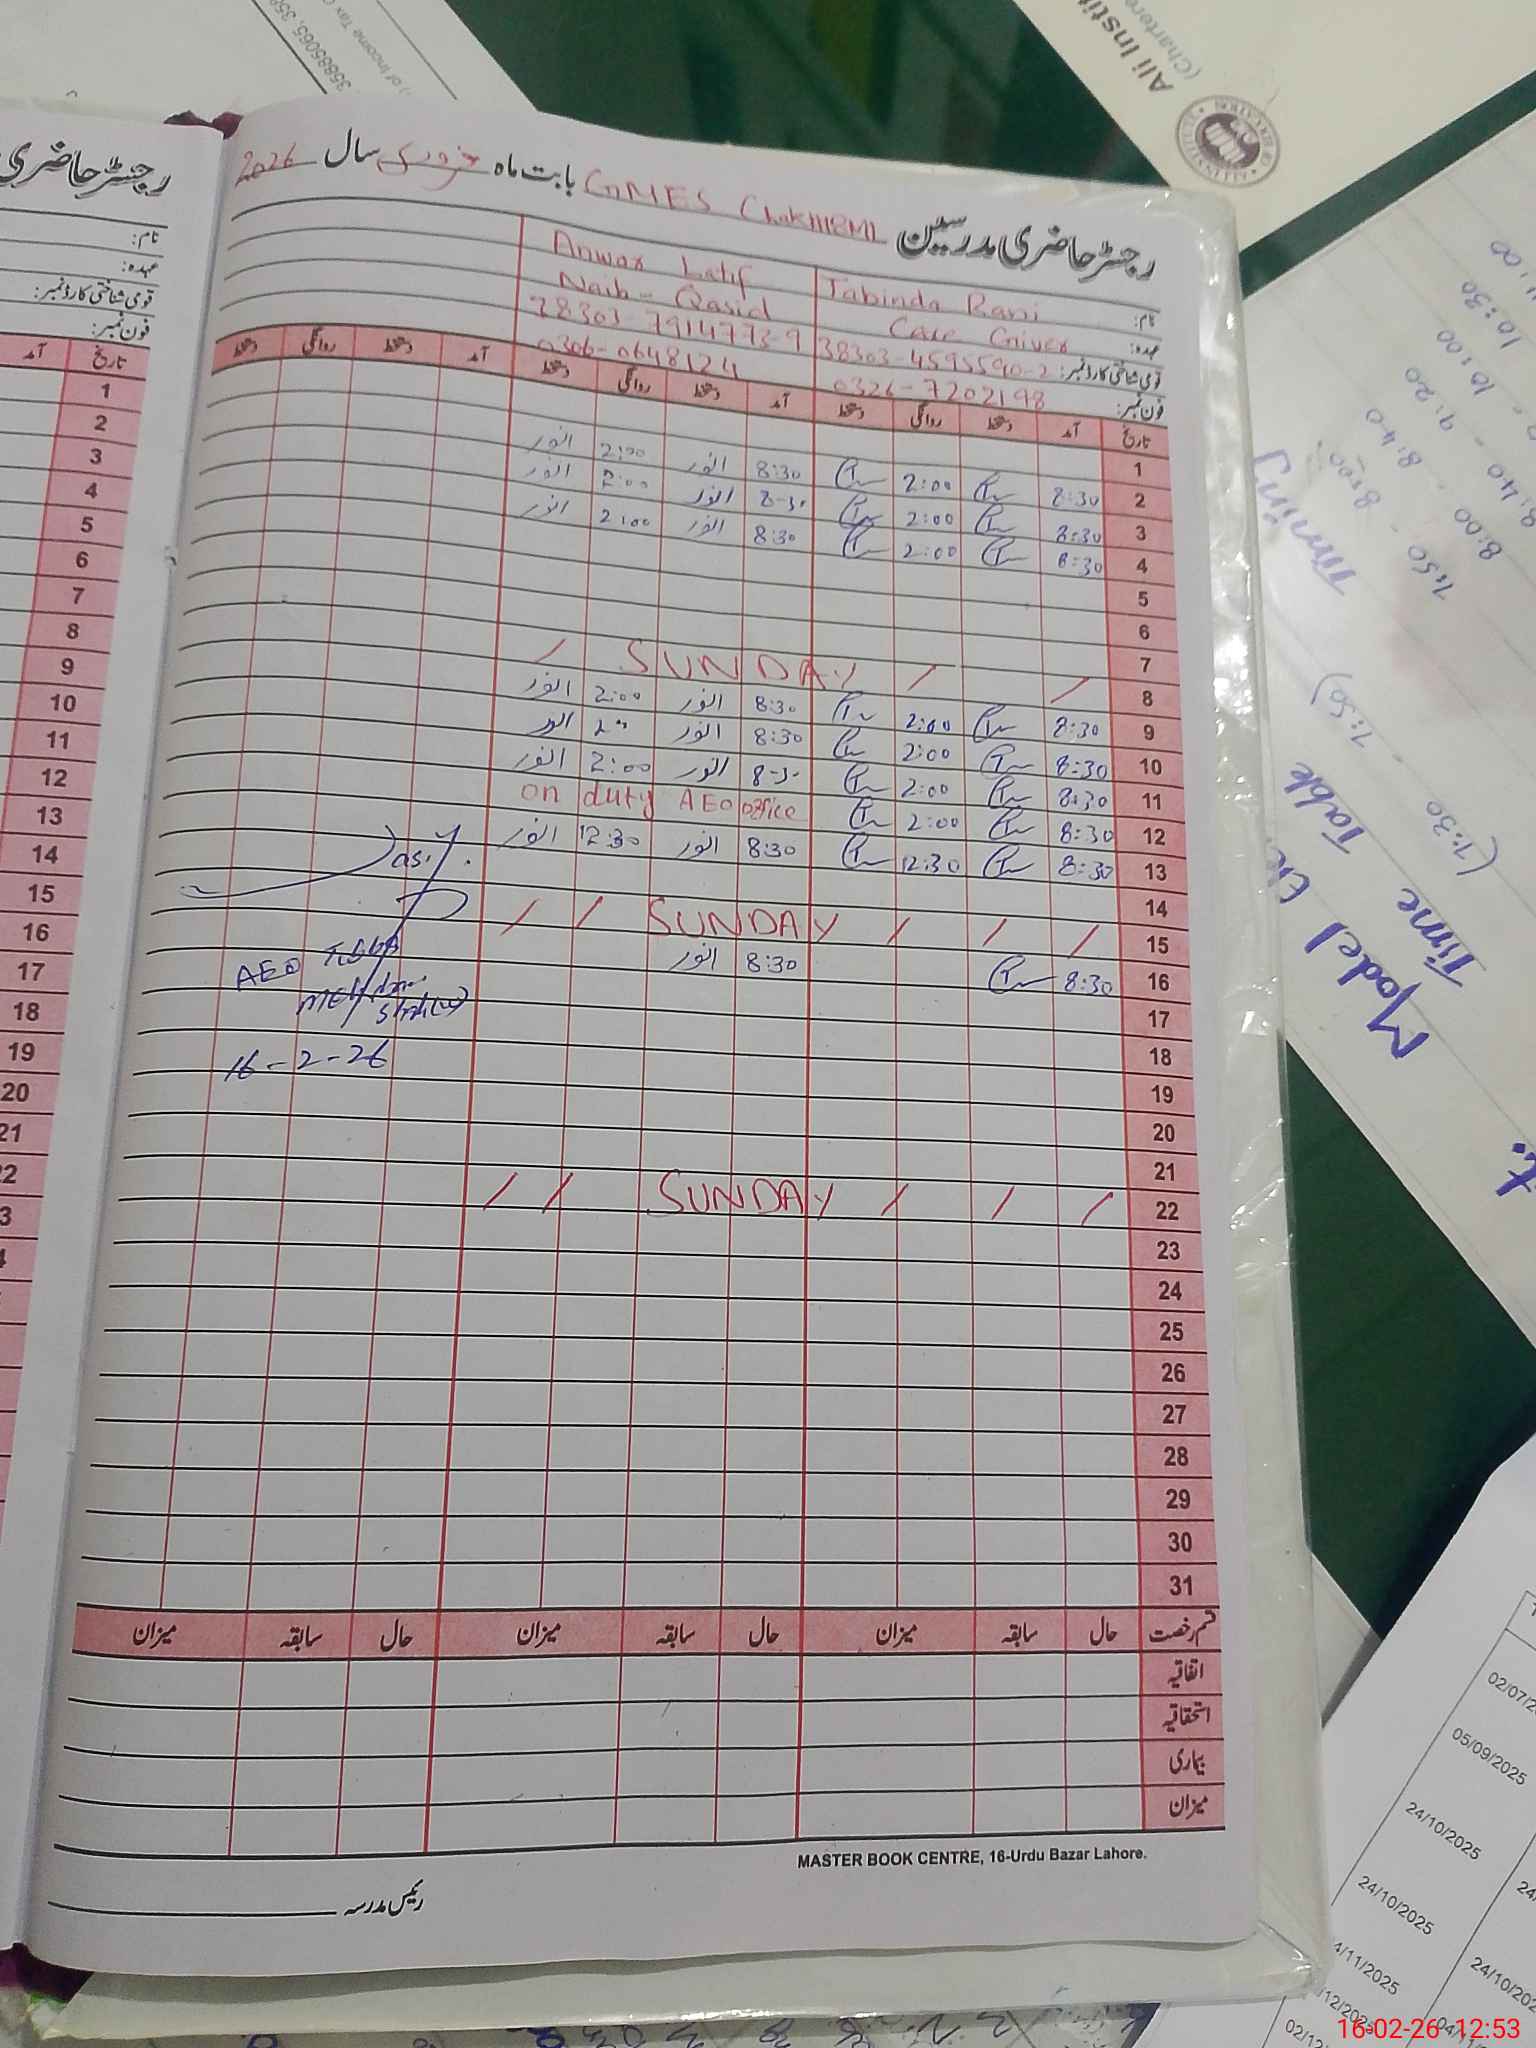 رجسٹر حاضری مدرسین GMES Chak 118ML بابت ماہ فروری سال 2026
نام: Tabinda Rani Anwar Latif
عہدہ: Care Giver Naib-Qasid
قومی شناختی کارڈ نمبر: 38303-4595590-2 38303-7914773-9
فون نمبر: 0326-7202198 0306-0648124
تاریخ آمد دستخط روانگی دستخط آمد دستخط روانگی دستخط آمد دستخط روانگی دستخط
1
2 8:30 2:00 8:30 انور 2:00 انور
3 8:30 2:00 8-30 انور 2:00 انور
4 8:30 2:00 8:30 انور 2:00 انور
5
6
7
8 / / SUNDAY /
9 8:30 2:00 8:30 انور 2:00 انور
10 8:30 2:00 8:30 انور 2" انور
11 8:30 2:00 8-30 انور 2:00 انور
12 8:30 2:00 on duty AEO office
13 8:30 12:30 8:30 انور 12:30 انور
14
15 / / / SUNDAY / /
16 8:30 8:30 انور
17
18
19
20
21
22 / / / SUNDAY / /
23
24
25
26
27
28
29
30
31
AEO
16-2-26
قسم رخصت حال سابقہ میزان حال سابقہ میزان حال سابقہ میزان
اتفاقیہ
استحقاقیہ
بیماری
میزان
MASTER BOOK CENTRE, 16-Urdu Bazar Lahore.
رئیس مدرسہ
رجسٹر حاضری
نام:
عہدہ:
قومی شناختی کارڈ نمبر:
فون نمبر:
تاریخ آمد
1
2
3
4
5
6
7
8
9
10
11
12
13
14
15
16
17
18
19
20
21
22
Ali Instit
(Chartere
35885065, 358
) of Income Tax O
Model
Time Table
Timing
(7:30 - 7:50)
7:50 - 8:00
8:00 - 8:40
8:40 - 9:20
10:00
10:30
02/07/2
05/09/2025
24/10/2025
24/10/2025
4/11/2025
/12/2025
02/12
24/10/202
04/11
16-02-26 12:53